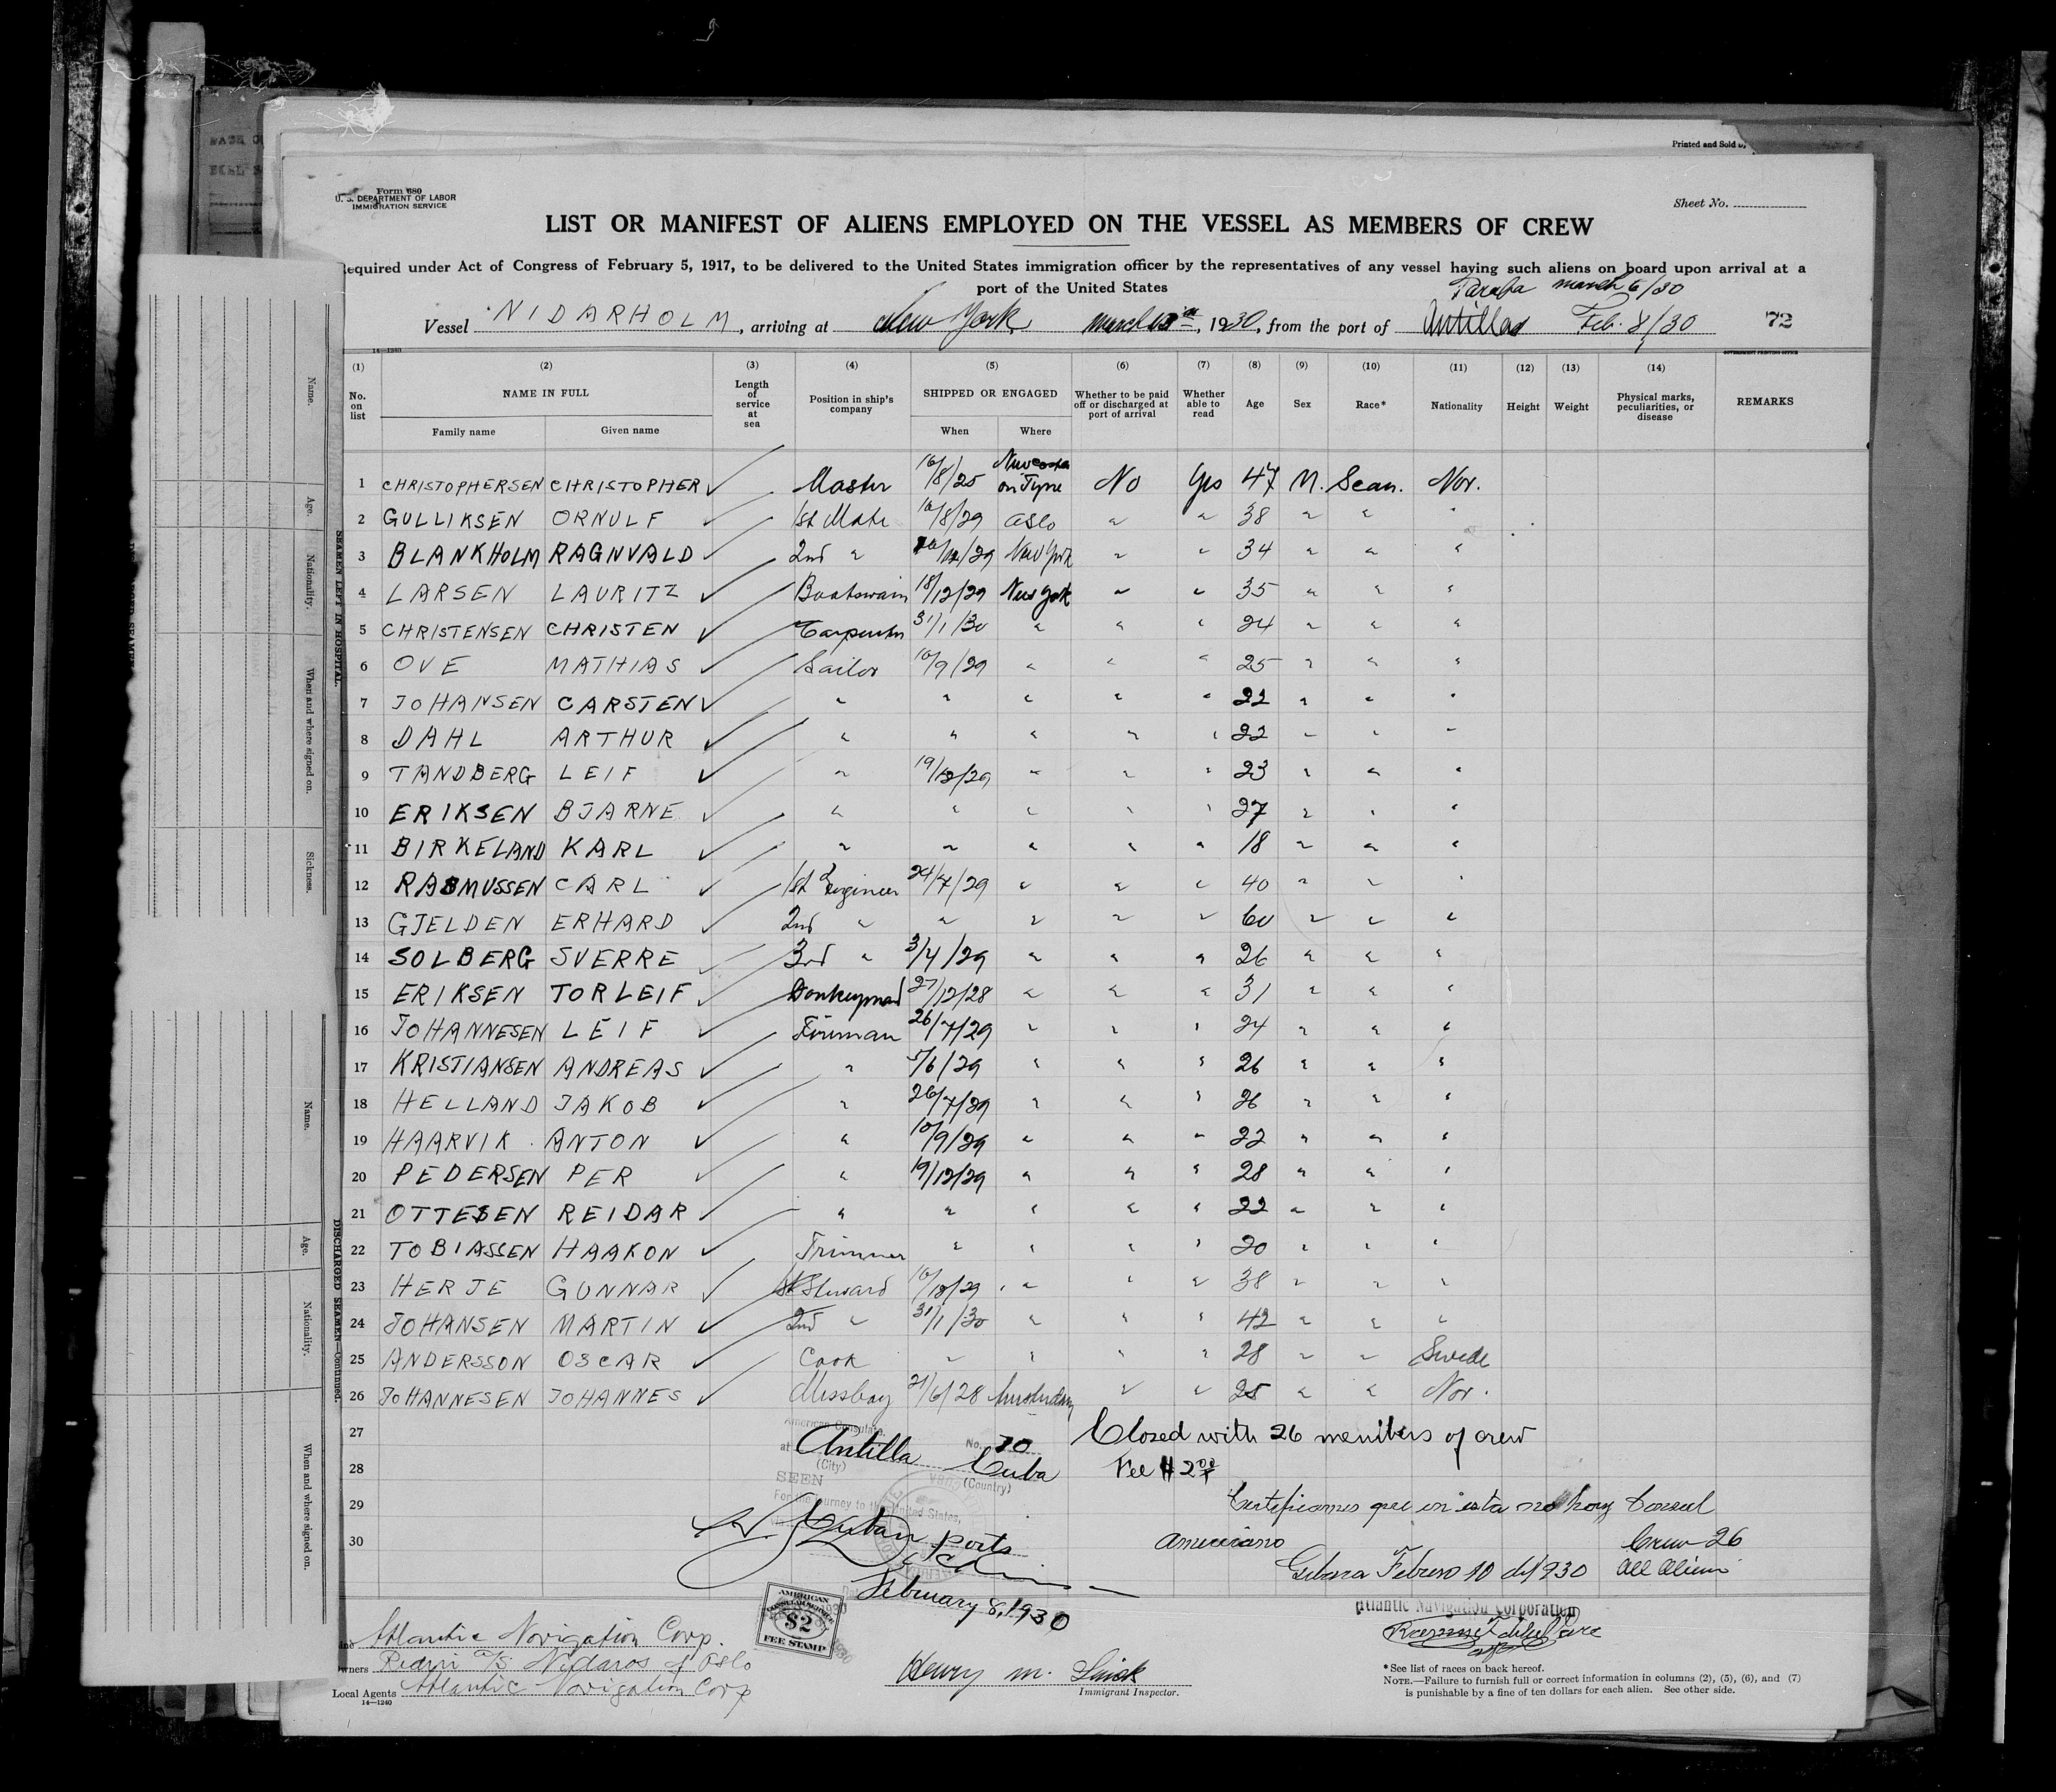 Printed and Sold by
Form 680
U. S. DEPARTMENT OF LABOR
IMMIGRATION SERVICE
Sheet No.
LIST OR MANIFEST OF ALIENS EMPLOYED ON THE VESSEL AS MEMBERS OF CREW
equired under Act of Congress of February 5, 1917, to be delivered to the United States immigration officer by the representatives of any vessel having such aliens on board upon arrival at a
port of the United States
march 6/30
Vessel NIDARHOLM, arriving at New York, march 13th, 1930, from the port of Antilla Feb. 8/30 72
14—1240
GOVERNMENT PRINTING OFFICE
(1) (2) (3) (4) (5) (6) (7) (8) (9) (10) (11) (12) (13) (14)
No. on list NAME IN FULL Length of service at sea Position in ship's company SHIPPED OR ENGAGED Whether to be paid off or discharged at port of arrival Whether able to read Age Sex Race* Nationality Height Weight Physical marks, peculiarities, or disease REMARKS
Family name Given name When Where
1 CHRISTOPHERSEN CHRISTOPHER ✓ Master 16/8/25 Newcastle on Tyne No Yes 47 M. Scan. Nor.
2 GULLIKSEN ORNULF ✓ 1st Mate 10/8/29 Oslo " " 38 " " "
3 BLANKHOLM RAGNVALD ✓ 2nd " /12/29 New York " " 34 " " "
4 LARSEN LAURITZ ✓ Boatswain 18/12/29 New York " " 35 " " "
5 CHRISTENSEN CHRISTEN ✓ Carpenter 31/1/30 " " " 24 " " "
6 OVE MATHIAS ✓ Sailor 10/9/29 " " " 25 " " "
7 JOHANSEN CARSTEN ✓ " " " " " 22 " " "
8 DAHL ARTHUR ✓ " " " " " 22 " " "
9 TANDBERG LEIF ✓ " 19/12/29 " " " 23 " " "
10 ERIKSEN BJARNE ✓ " " " " " 27 " " "
11 BIRKELAND KARL ✓ " " " " " 18 " " "
12 RASMUSSEN CARL ✓ 1st Engineer 24/7/29 " " " 40 " " "
13 GJELDEN ERHARD ✓ 2nd " " " " " 60 " " "
14 SOLBERG SVERRE ✓ 3rd " 3/4/29 " " " 26 " " "
15 ERIKSEN TORLEIF ✓ Donkeyman 27/12/28 " " " 31 " " "
16 JOHANNESEN LEIF ✓ Fireman 26/7/29 " " " 24 " " "
17 KRISTIANSEN ANDREAS ✓ " 5/6/29 " " " 26 " " "
18 HELLAND JAKOB ✓ " 26/7/29 " " " 26 " " "
19 HAARVIK ANTON ✓ " 10/9/29 " " " 22 " " "
20 PEDERSEN PER ✓ " 19/12/29 " " " 28 " " "
21 OTTESEN REIDAR ✓ " " " " " 22 " " "
22 TOBIASSEN HAAKON ✓ Trimmer " " " " 20 " " "
23 HERJE GUNNAR ✓ 1st Steward 10/12/29 " " " 38 " " "
24 JOHANSEN MARTIN ✓ 2nd " 31/1/30 " " " 42 " " "
25 ANDERSSON OSCAR ✓ Cook " " " " 28 " " Swede
26 JOHANNESEN JOHANNES ✓ Messboy 21/6/28 Amsterdam " " 25 " " Nor.
27
28
29
30
American Consulate,
at Antilla No. 20 Cuba
(City) (Country)
SEEN
For the journey to the United States,
Cuban ports
February 8, 1930
AMERICAN CONSULAR SERVICE
$2
FEE STAMP
Closed with 26 members of crew
Fee $2.00
Certificamos que en esta no hay Consul
Americano
Gibara Febrero 10 de 1930
Crew 26
All Aliens
Atlantic Navigation Corporation
Atlantic Navigation Corp.
wners Rederi A/S Nidaros of Oslo
Local Agents Atlantic Navigation Corp
14—1240
Henry M.
Immigrant Inspector.
*See list of races on back hereof.
NOTE.—Failure to furnish full or correct information in columns (2), (5), (6), and (7)
is punishable by a fine of ten dollars for each alien. See other side.
SEAMEN LEFT IN HOSPITAL.
Name.
Age.
Nationality.
When and where signed on.
Sickness.
DISCHARGED SEAMEN—Continued.
Name.
Age.
Nationality.
When and where signed on.